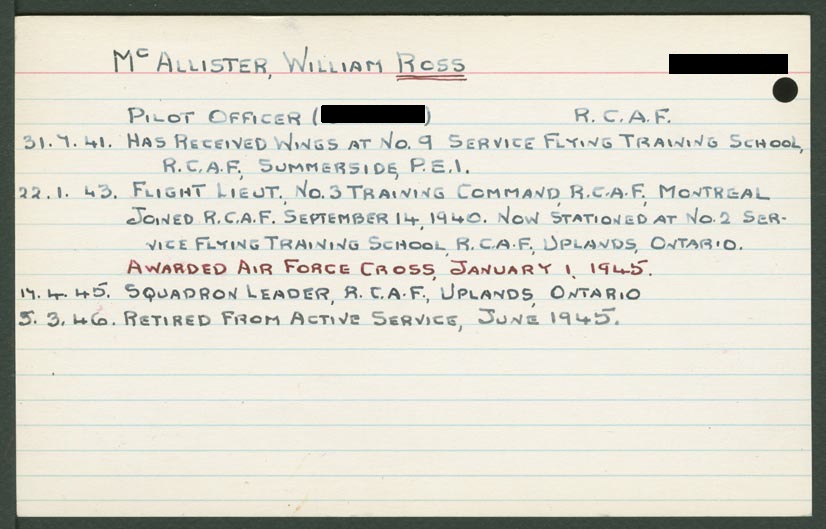 Mc ALLISTER, WILLIAM ROSS
PILOT OFFICER ( ) R.C.A.F.
31.7.41. HAS RECEIVED WINGS AT NO. 9 SERVICE FLYING TRAINING SCHOOL,
R.C.A.F., SUMMERSIDE, P.E.I.
22.1.43. FLIGHT LIEUT., NO. 3 TRAINING COMMAND, R.C.A.F., MONTREAL
JOINED R.C.A.F. SEPTEMBER 14, 1940. NOW STATIONED AT NO. 2 SER-
VICE FLYING TRAINING SCHOOL, R.C.A.F., UPLANDS, ONTARIO.
AWARDED AIR FORCE CROSS, JANUARY 1, 1945.
17.4.45. SQUADRON LEADER, R.C.A.F., UPLANDS, ONTARIO
5.3.46. RETIRED FROM ACTIVE SERVICE, JUNE 1945.